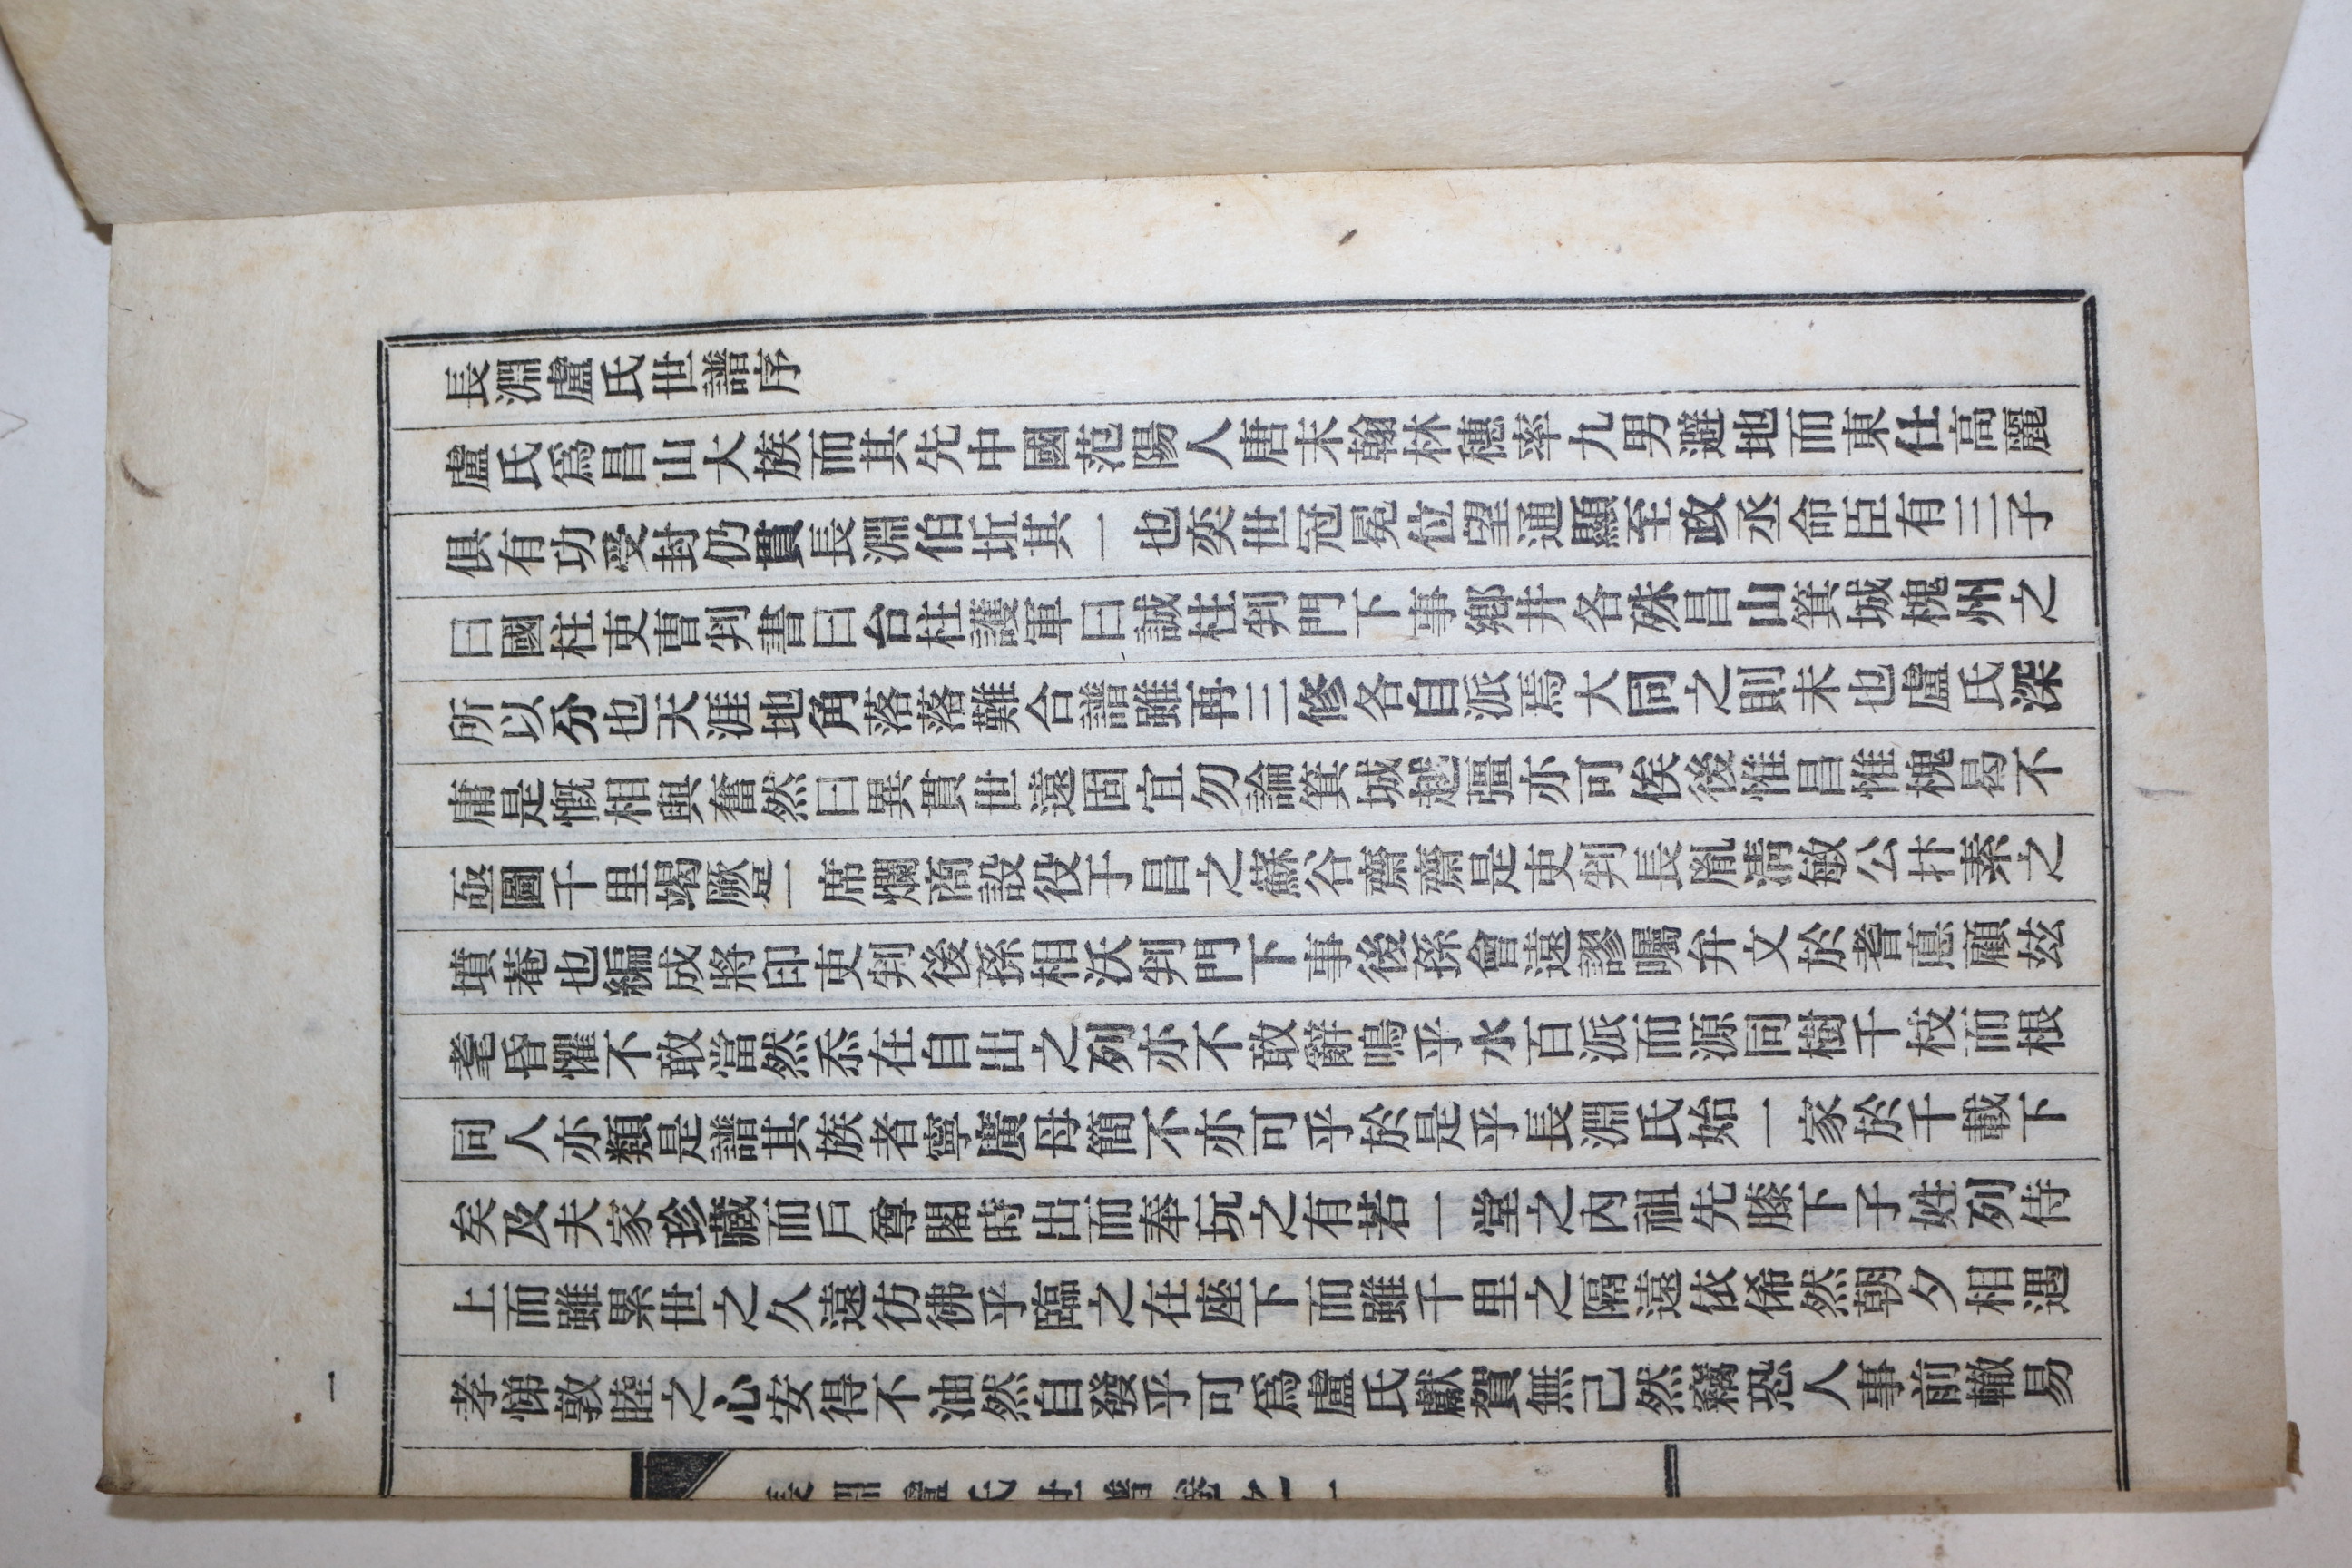 長淵盧氏世譜序
盧氏爲昌山大族而其先中國范陽人唐末翰林穗率九男避地而東仕高麗
俱有功受封仍貫長淵伯坵其一也奕世冠冕位望通顯至政丞命臣有三子
曰國柱吏曹判書曰台柱護軍曰誠柱判門下事鄕井各殊昌山箕城槐州之
所以分也天涯地角落落難合譜雖再三修各自派焉大同之則未也盧氏深
庸是慨相與奮然曰異貫世遠固宜勿論箕城越疆亦可俟後惟昌惟槐曷不
亟圖千里竭蹶一席爛商設役于昌之蘇谷齋齋是吏判長胤淸敏公抃素之
墳菴也編成將印吏判後孫相沃判門下事後孫會遠謬囑弁文於耆悳顧玆
耄昏懼不敢當然忝在自出之列亦不敢辭嗚乎水百派而源同樹千枝而根
同人亦類是譜其族者寧廣毋簡不亦可乎於是乎長淵氏始一家於千載下
矣及夫家珍藏而戶尊閣時出而奉玩之有若一堂之內祖先膝下子姓列侍
上而雖累世之久遠彷彿乎臨之在座下而雖千里之隔遠依俙然朝夕相遇
孝悌敦睦之心安得不油然自發乎可爲盧氏獻賀無已然竊恐人事前轍易
長淵盧氏世譜卷之一
一